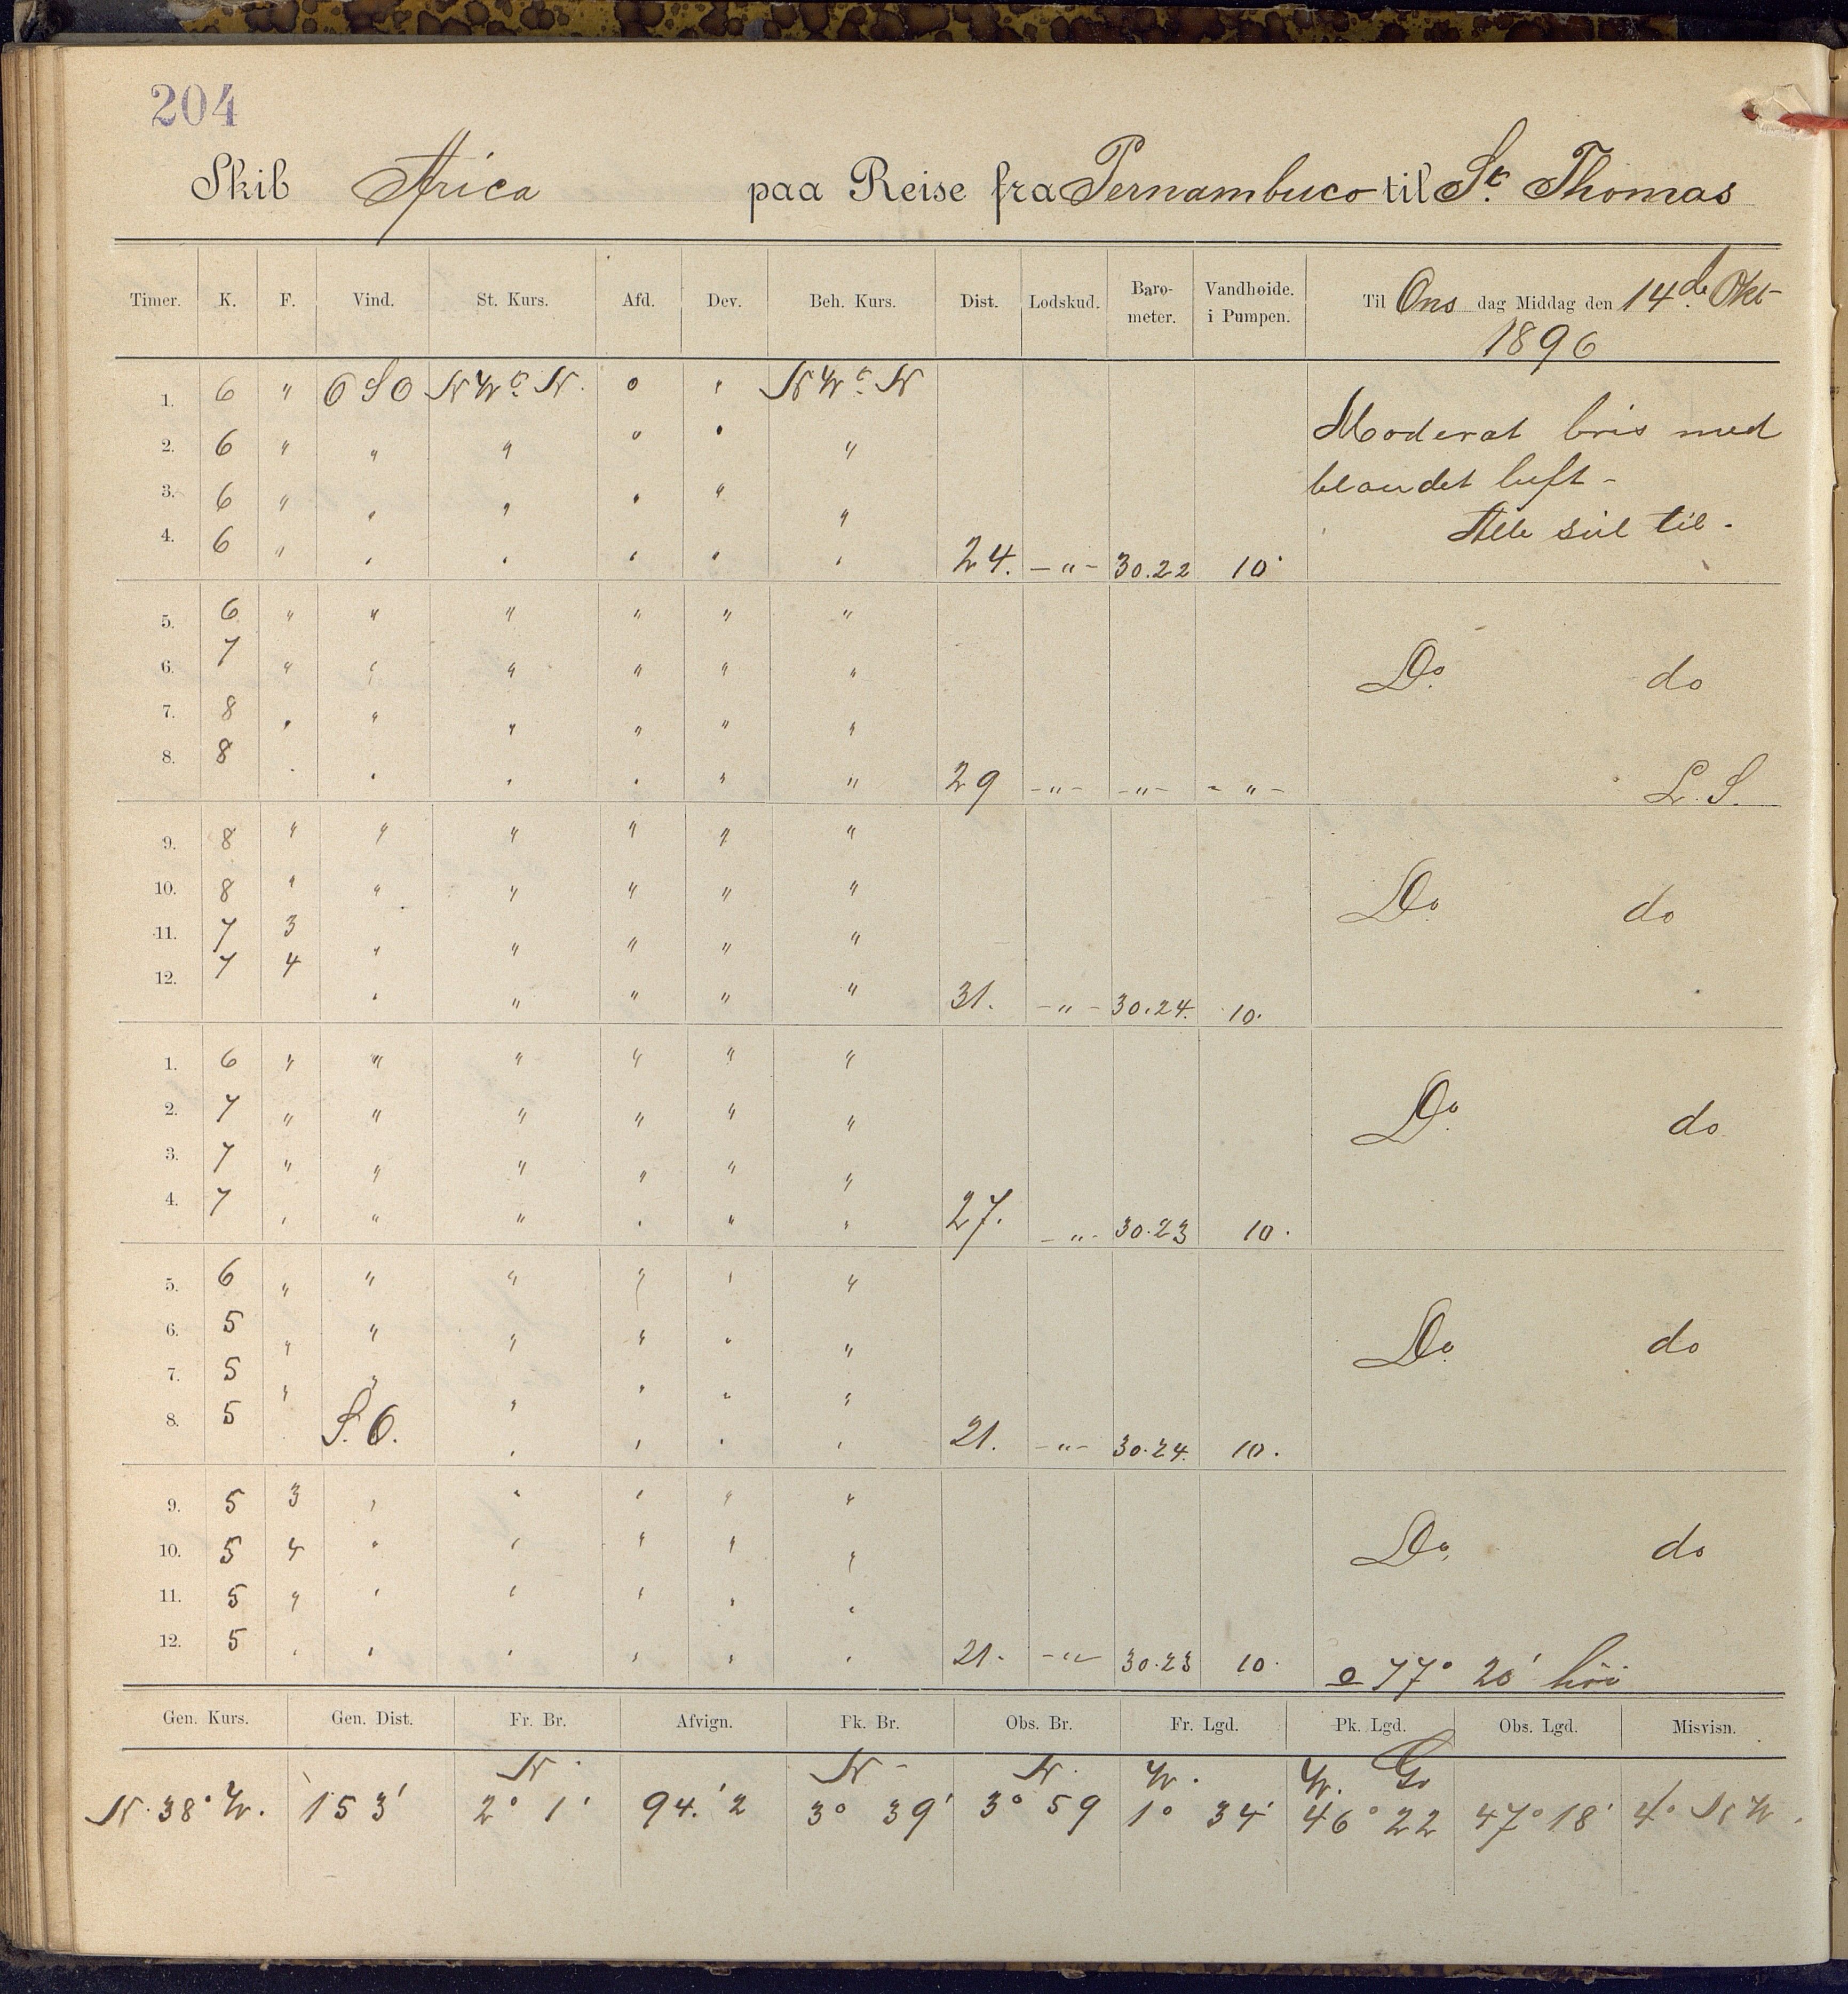 204
Skib Arica paa Reise fra Pernambuco til St. Thomas
Timer. K. F. Vind. St. Kurs. Afd. Dev. Beh. Kurs. Dist. Lodskud. Baro-meter. Vandhøide. i Pumpen. Til Ons dag Middag den 14de Okt
1896
1. 6 " OSO NWtN. 0 " NWtN
Moderat bris med
2. 6 " " " " " "
blandet luft -
3. 6 " " " " " "
Alle seil til.
4. 6 " " " " " " 24. -"- 30.22 10
5. 6 " " " " " "
6. 7 " " " " " " Do do
7. 8 " " " " " "
8. 8 " " " " " " 29 -"- -"- -"- L. S.
9. 8 " " " " " "
10. 8 " " " " " " Do do
11. 7 3 " " " " "
12. 7 4 " " " " " 31. -"- 30.24. 10.
1. 6 " " " " " "
2. 7 " " " " " " Do do
3. 7 " " " " " "
4. 7 " " " " " " 27. -"- 30.23 10.
5. 6 " " " " " "
6. 5 " " " " " " Do do
7. 5 " " " " " "
8. 5 " S.O. " " " " 21. -"- 30.24. 10.
9. 5 3 " " " " "
10. 5 4 " " " " " Do do
11. 5 " " " " " "
12. 5 " " " " " " 21. -"- 30.23 10. 77° 20'
Gen. Kurs. Gen. Dist. Fr. Br. Afvign. Pk. Br. Obs. Br. Fr. Lgd. Pk. Lgd. Obs. Lgd. Misvisn.
N. N- N. W. W. Gr
N. 38° W. 153' 2° 1' 94.'2 3° 39' 3° 59 1° 34' 46° 22 47° 18' 4° NW.